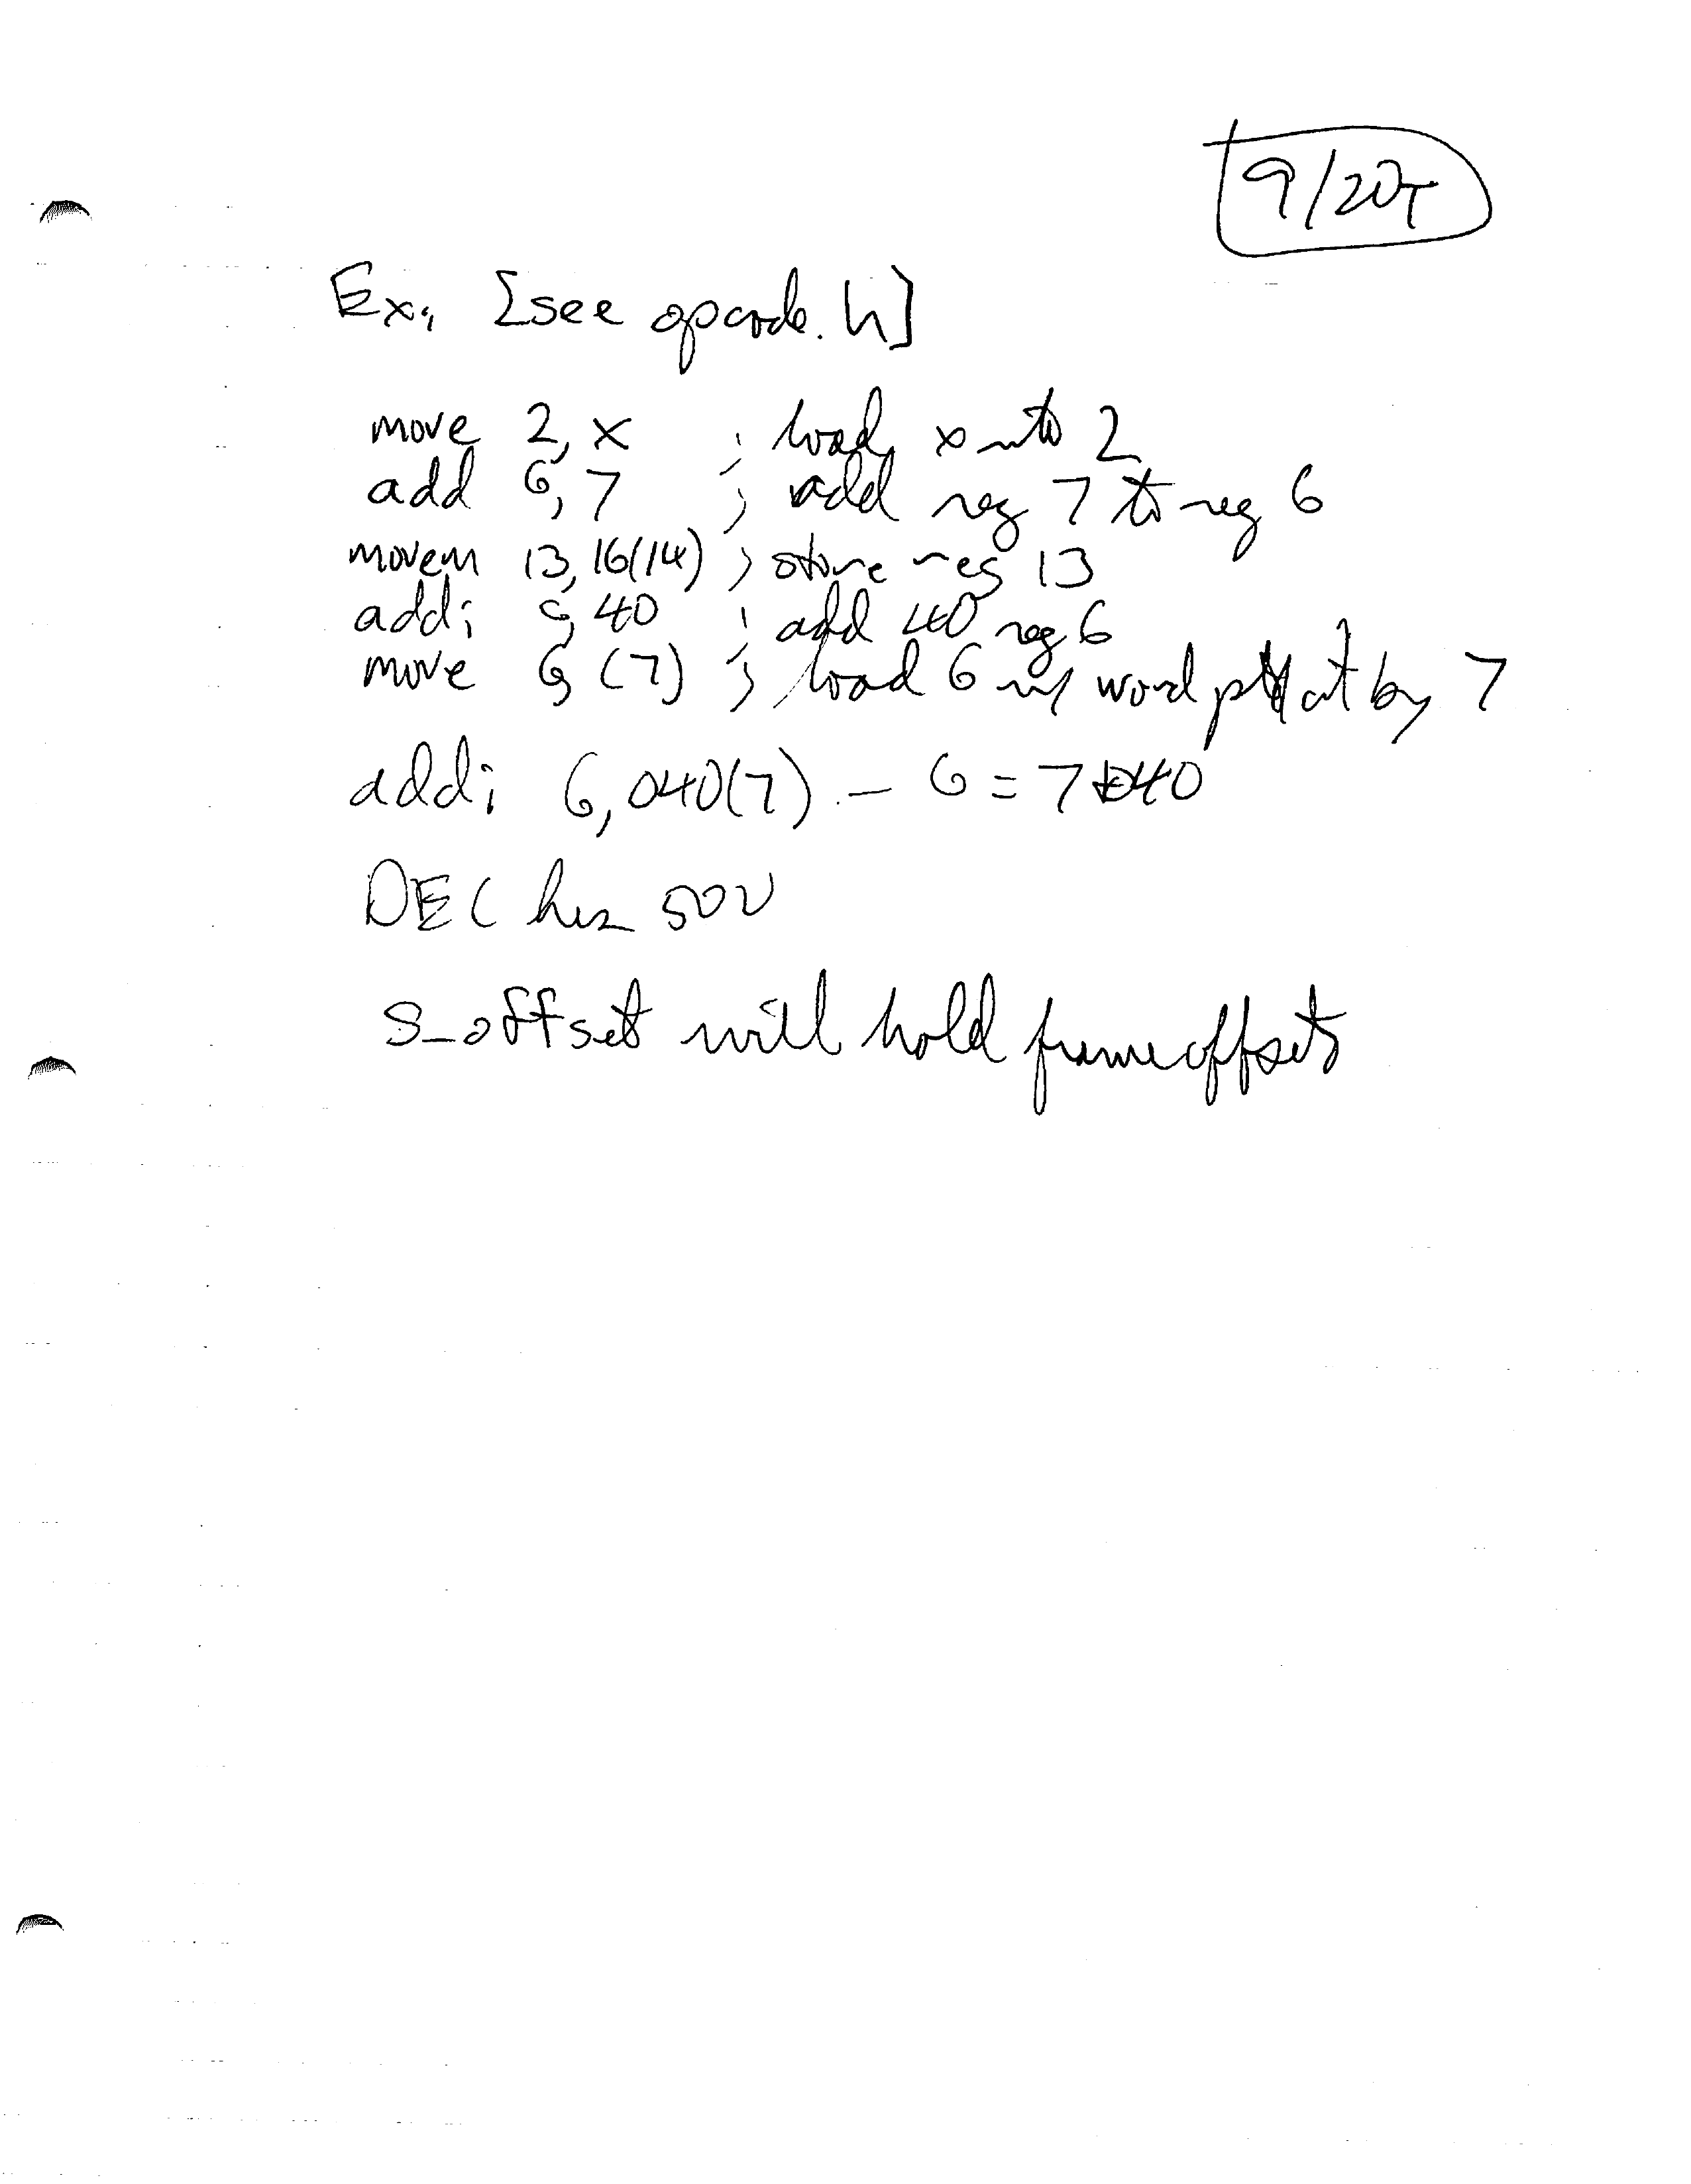 9/20T
Ex. [see opcode.h]
move 2, x ; load x into 2
add 6, 7 ; add reg 7 to reg 6
movem 13, 16(14) ; store reg 13
addi 6, 40 ; add 40 reg 6
move 6, (7) ; load 6 w/ word at by 7
addi 6, 040(7) - 6 = 7+040
DEC has
s_offset will hold frame offsets